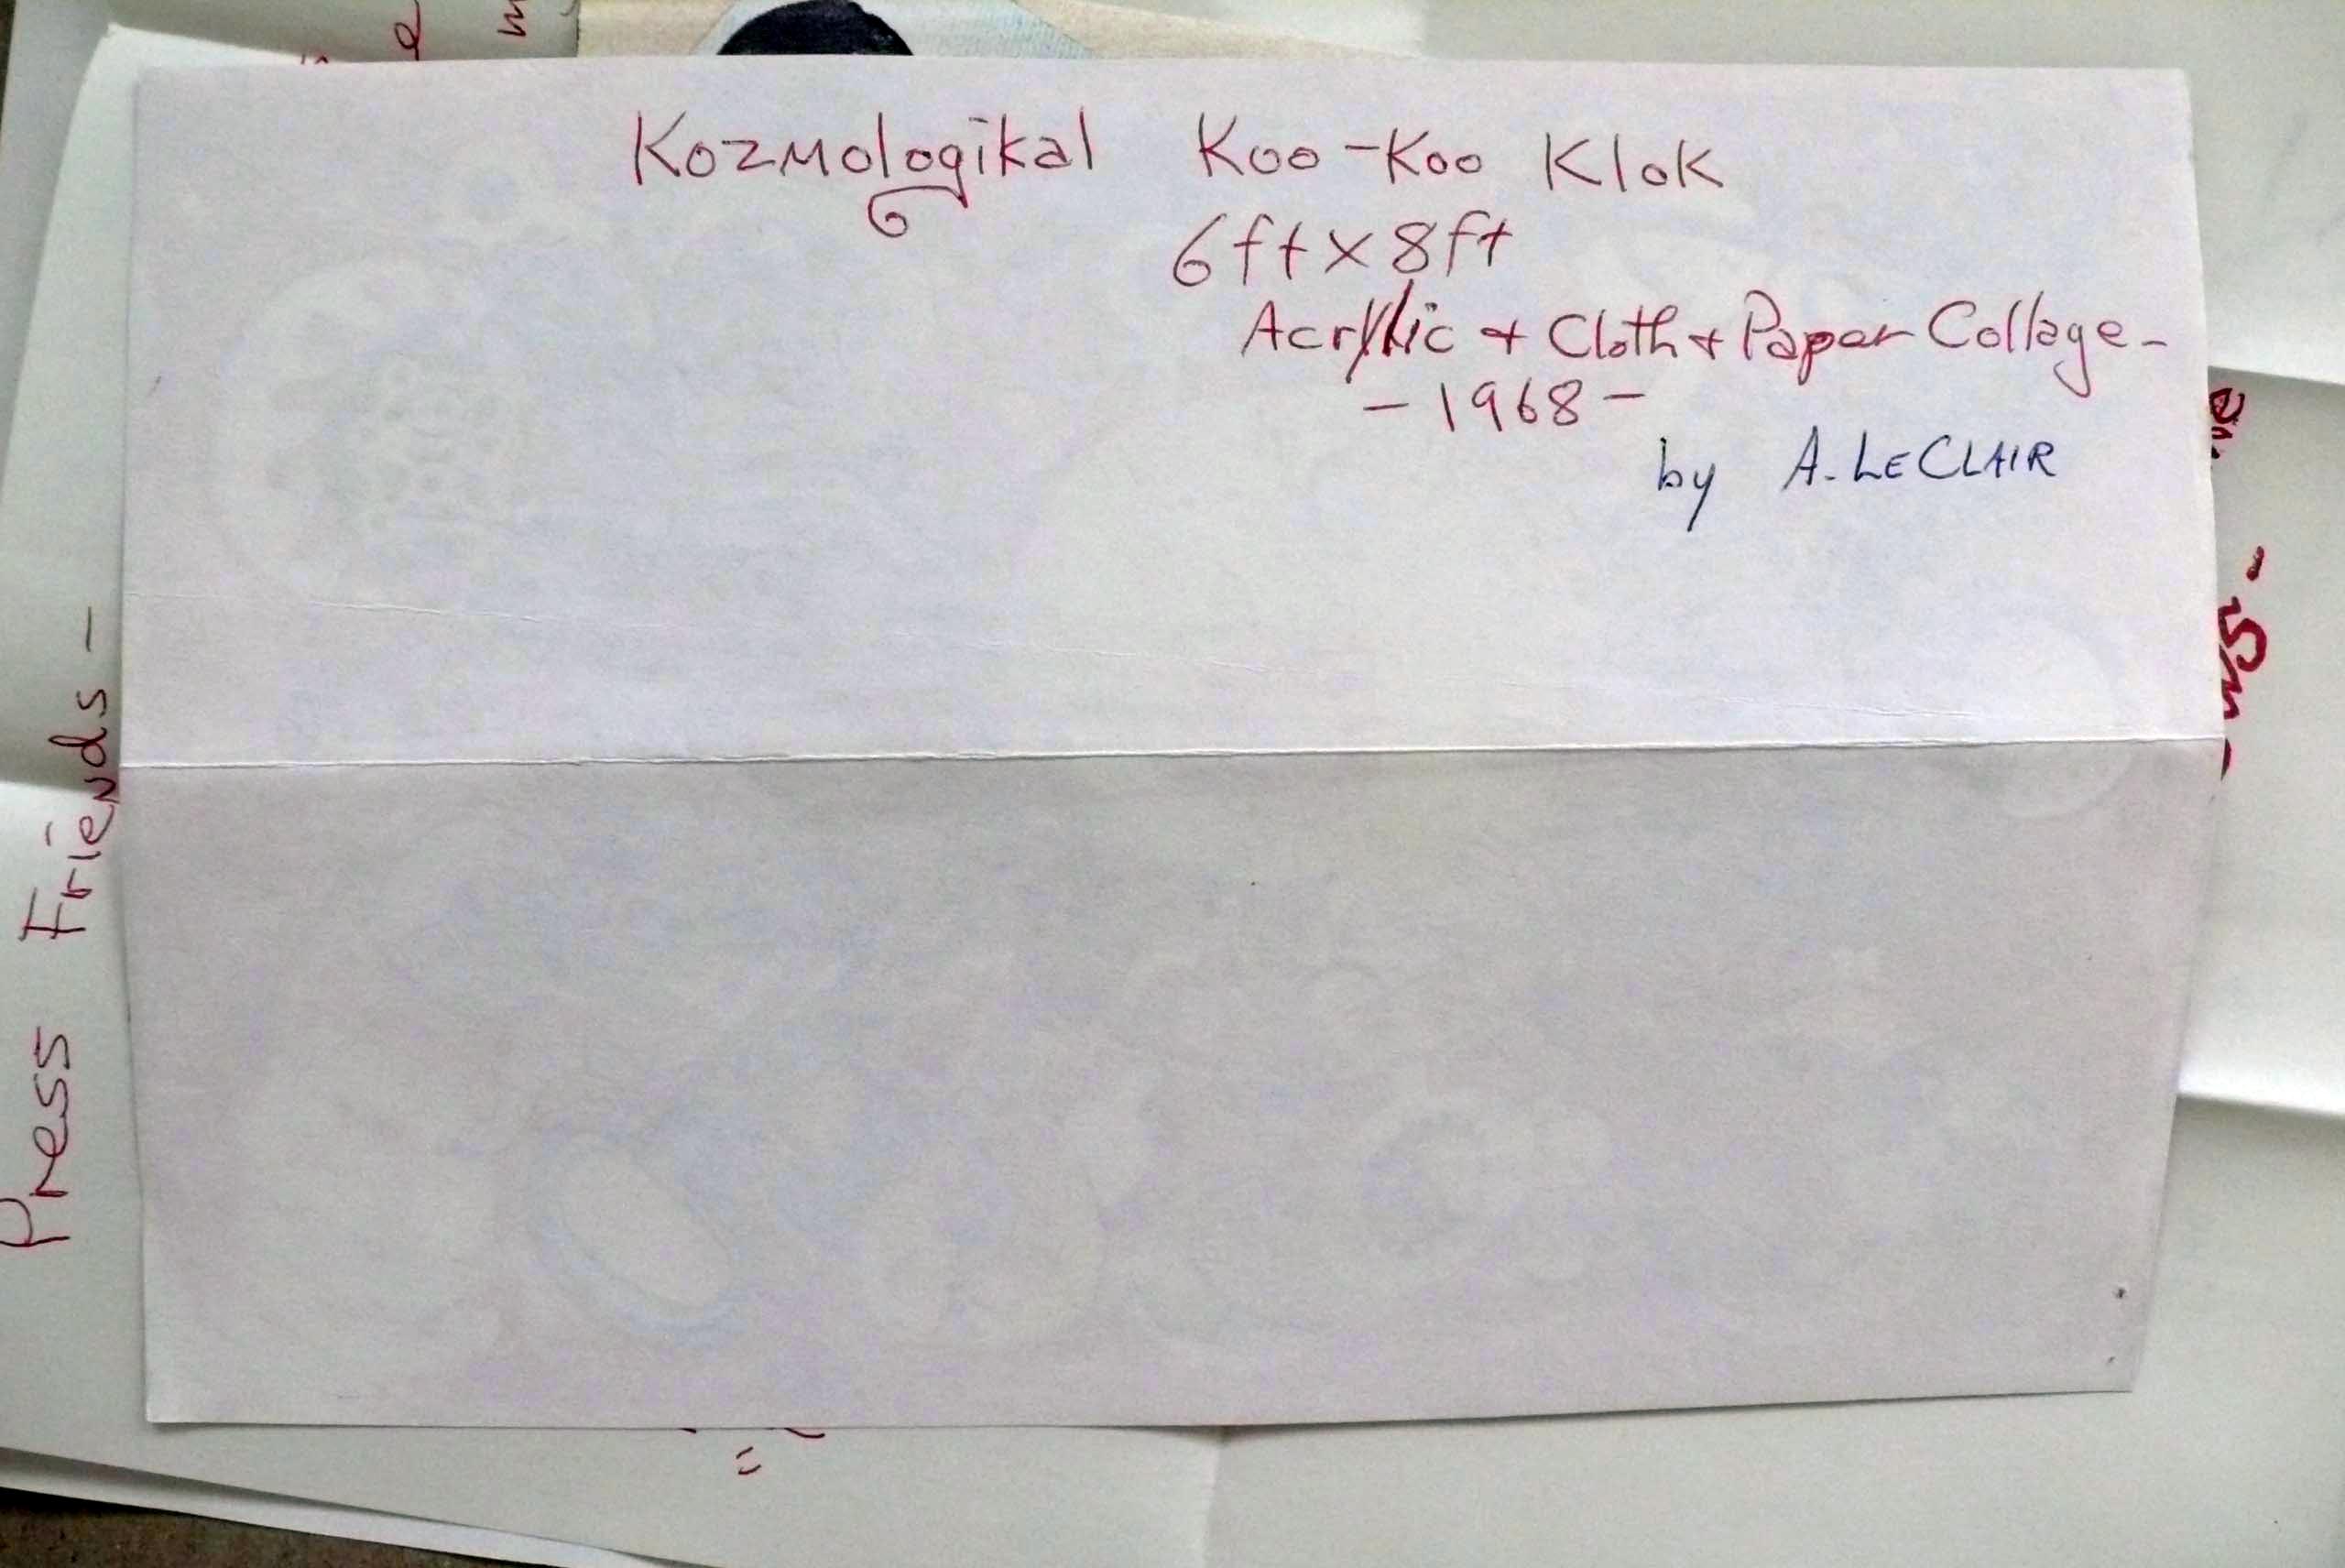 Kozmologikal Koo-Koo Klok
6ft x 8ft
Acrylic + Cloth + Paper Collage -
- 1968 -
by A. LECLAIR
Press Friends -